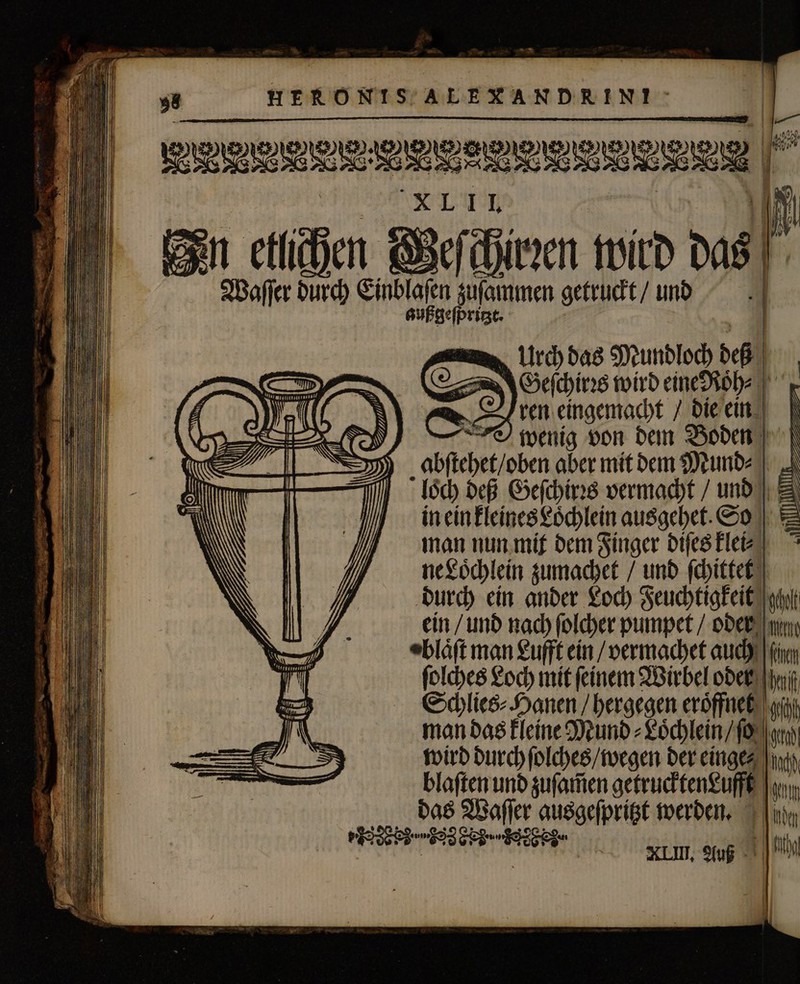 98 HERONIS ALEXANDRINI
XLII.
In etlichen Geſchirꝛen wird das
Waſſer durch Einblaſen zuſammen getruckt / und
außgeſpritzt.
DUrch das Mundloch deß
Geſchirꝛs wird eine Roͤh⸗
ren eingemacht / die ein
wenig von dem Boden
abſtehet / oben aber mit dem Mund⸗
loͤch deß Geſchirꝛs vermacht / und
in ein kleines Loͤchlein ausgehet. So
man nun mit dem Finger diſes klei⸗
ne Loͤchlein zumachet / und ſchittet
durch ein ander Loch Feuchtigkeit
ein / und nach ſolcher pumpet / oder
blaͤſt man Lufft ein / vermachet auch
ſolches Loch mit ſeinem Wirbel oder
Schlies⸗Hanen / hergegen eroͤffnet
man das kleine Mund⸗Loͤchlein / ſo
wird durch ſolches / wegen der einge⸗
blaſten und zuſam̃en getruckten Lufft
das Waſſer ausgeſpritzt werden.
XLIII. Auß